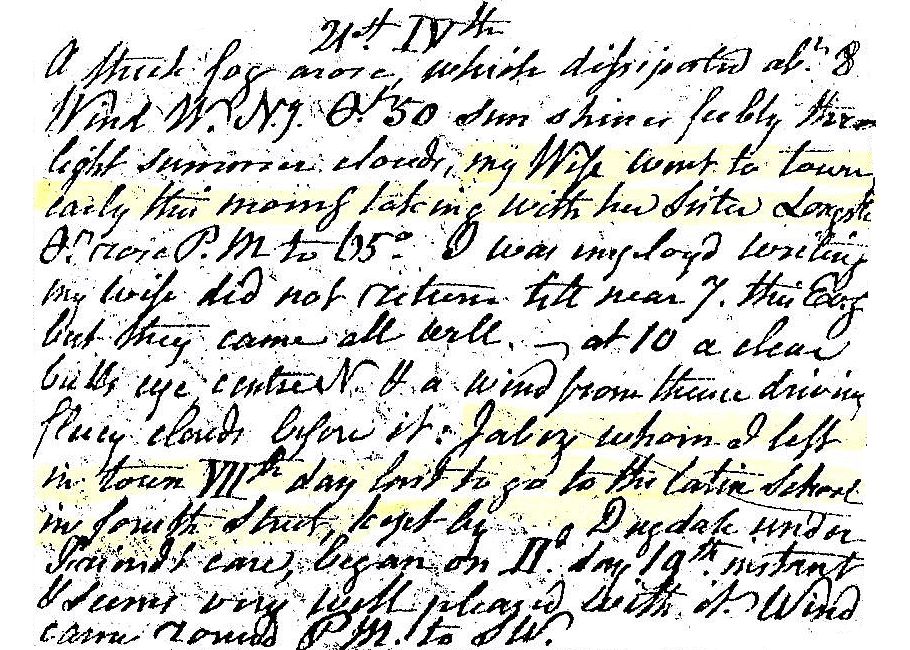 21st IVth
A thick fog arose, which dissipated abt. 8
Wind W. N.9. Or. 50 sun shines feebly thro
light summer clouds, my Wife went to town
early this morng taking with her Sister
Or. rose P.M to 65° I was employd writing
my wife did not return till near 7. this Eveg
but they came all well. — at 10 a clear
bulls eye centre N. & a wind from thence driving
fleecy clouds before it: Jabez whom I left
in town VIIth day last to go to the Latin School
in fourth Street, kept by Dugdale under
Friends care, began on IId. day 19th instant
& seems very well pleased with it. Wind
came round P.M. to SW.